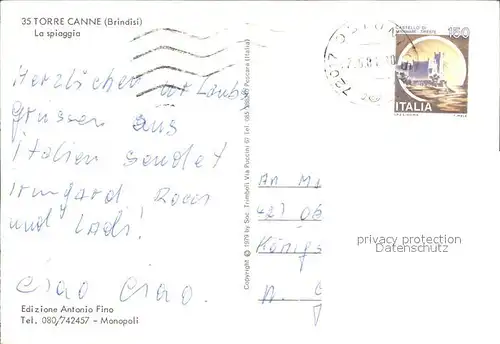 35 TORRE CANNE (Brindisi)
La spiaggia
CASTELLO DI
MIRAMARE - TRIESTE
150
ITALIA
Herzlichen Urlaubs
grüssen aus
Italien sendet
Irmgard,
und Ladi!
Ciao Ciao.
Copyright © 1979 by Soc. Trimboli Via Puccini 07 Tel. 085 Pescara (Italia)
An
427
Königs
privacy protection
Datenschutz
Edizione Antonio Fino
Tel. 080/742457 – Monopoli